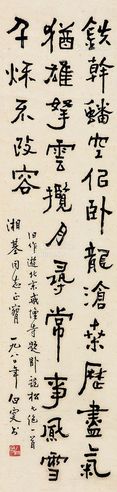 鉄幹蟠空似卧龍滄桑歷盡氣
猶雄拏雲攬月尋常事風雪
千秋不改容
旧作遊北京戒壇寺題卧龍松七绝一首
湘綦同志正寶 一九八〇年